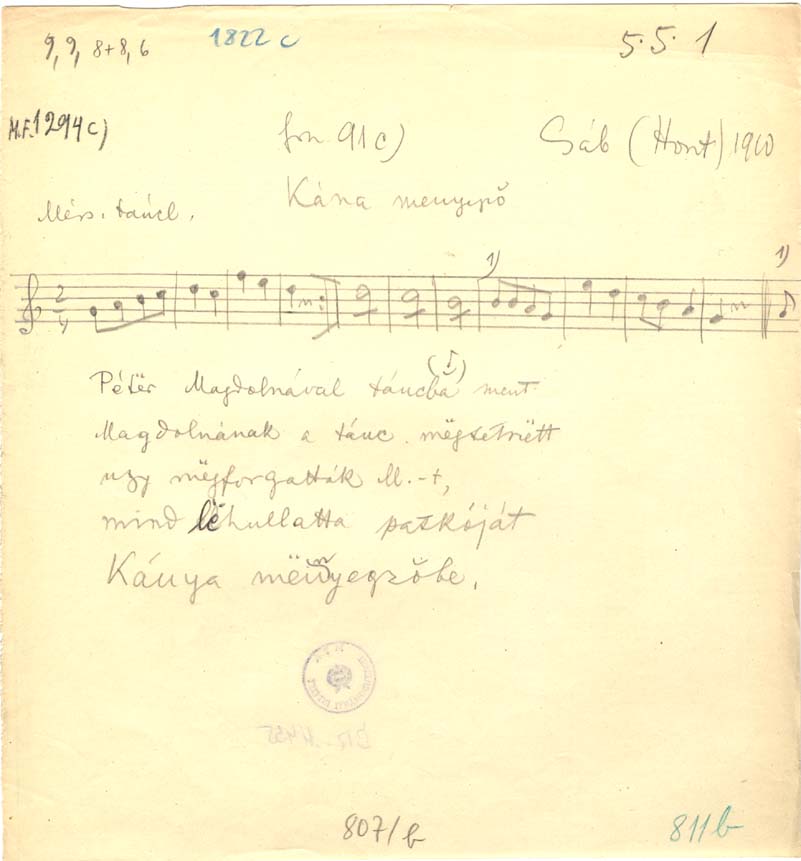 9, 9, 8+8, 6 1822 c 5.5.1
M.F. 1294 c) fon. 91 c) Sáb (Hont) 1910
Kána menyegző
Mérs. táncl.
1) 1)
2
4
Pétër Magdolnával táncba ment
Magdolnának a tánc mëgtetriëtt
ugy mëgforgatták M.-t,
mind lëhullatta patkóját
Kánya mënnyegzőbe.
807/b
811b